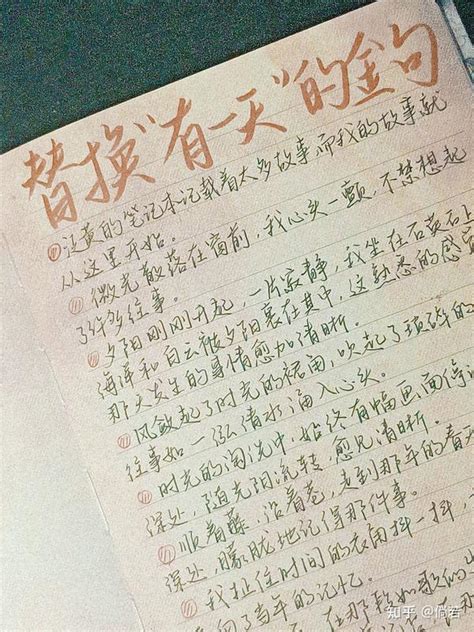 替换“有一天”的金句
泛黄的笔记本记载着太多故事,而我的故事就
从这里开始。
微光散落在窗前,我心头一颤,不禁想起
了许多往事。
夕阳刚刚升起,一片寂静,我坐在石
海洋和白云被夕阳裹在其中,这熟悉的感
那天发生的事情愈加清晰。
风敛起了时光的裙角,吹起了琐碎的
往事如一泓清水涌入心头。
时光的淘洗中,始终有幅画面停
深处,随光阴流转,愈见清晰。
顺着藤,沿着巷,走到那年的春
深处,朦胧地记得那件事。
我扯住时间的衣角抖一抖,
当年的记忆。
在那
知乎 @倘若